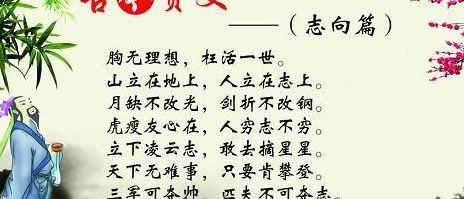 古今贤文
——（志向篇）
胸无理想，枉活一世。
山立在地上，人立在志上。
月缺不改光，剑折不改钢。
虎瘦友心在，人穷志不穷。
立下凌云志，敢去摘星星。
天下无难事，只要肯攀登。
三军可夺帅，匹夫不可夺志。